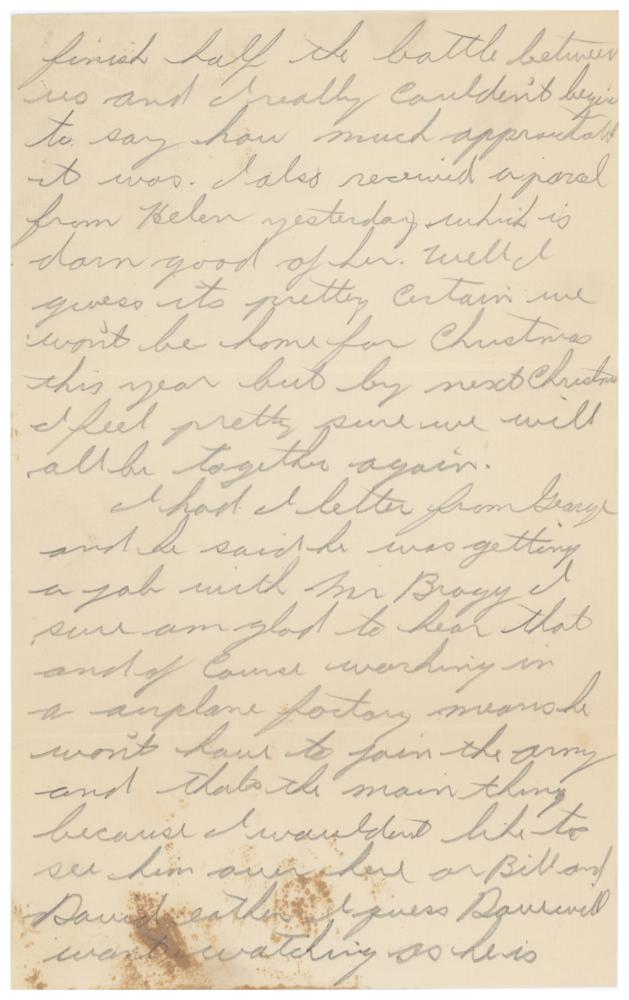 finish half the battle between
us and I really coulden't begin
to say how much appreciated
it was. I also received a parcel
from Helen yesterday which is
darn good of her. Well I
guess its pretty certain we
won't be home for Christmas
this year but by next Christmas
I feel pretty sure we will
all be together again.
I had I letter from George
and he said he was getting
a job with Mr I
sure am glad to hear that
and of course working in
a airplane factory means he
won't have to join the army
and thats the main thing
because I wouldent like to
see him over here or Bill and
David eather I guess Dave will
want watching as he is